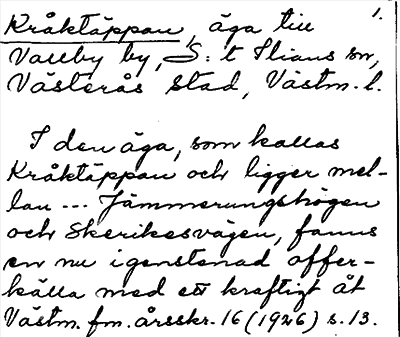 1.
Kråktäppan, äga till
Vallby by, S:t Ilians sn,
Västerås stad, Västm. l.
I den äga, som kallas
Kråktäppan och ligger mel-
lan --- Jämmerungshögen
och Skerikesvägen, fanns
en nu igenstenad offer-
källa med ett kraftigt åt
Västm. fm. årsskr. 16 (1926) s. 13.